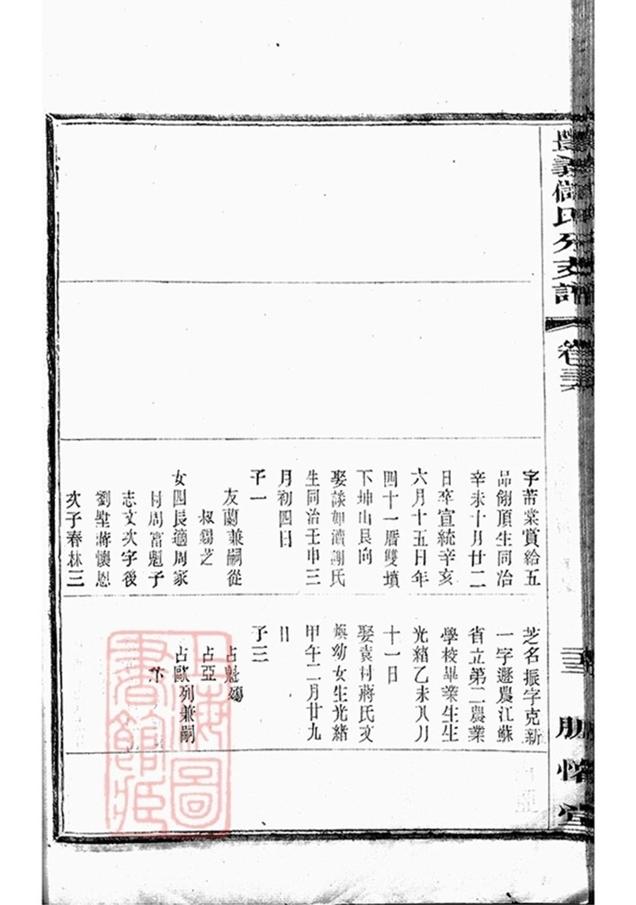 義氏分支譜
卷三
字蒂棠賞給五
品翎頂生同治
辛未十月廿二
日卒宣統辛亥
六月十五日年
四十一厝雙墳
下坤山艮向
娶談如瀆謝氏
生同治壬申三
月初四日
子一
友蘭兼嗣從
叔錫芝
女四長適周家
村周富魁子
志文次字後
劉墅蔣懷恩
次子春林三
芝名振字克新
一字遯農江蘇
省立第二農業
學校畢業生生
光緒乙未八月
十一日
娶袁村蔣氏文
煥幼女生光緒
甲午二月廿九
日
子三
占魁殤
占亞
占歐列兼嗣
上海圖書館藏